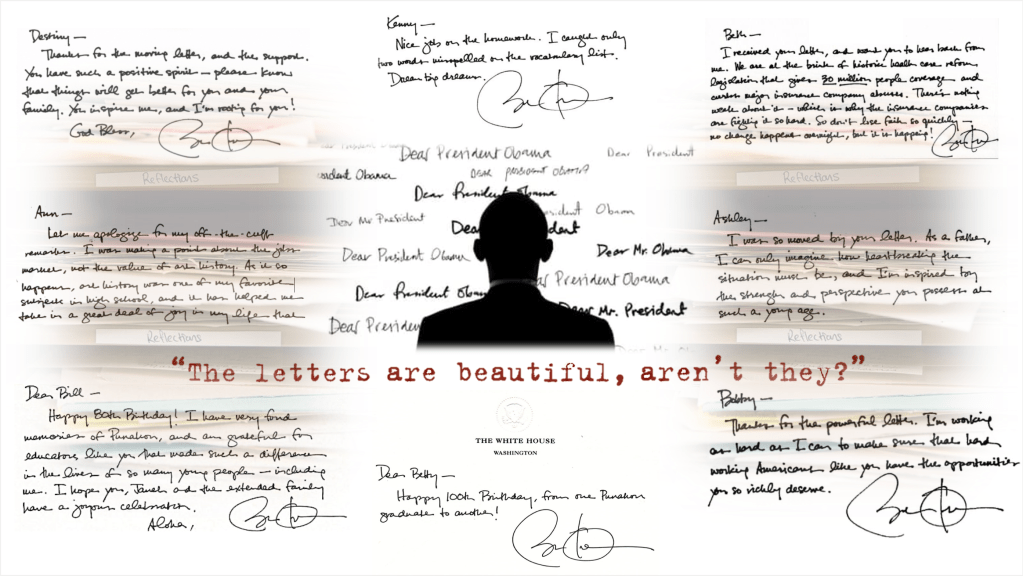 Destiny —
Thanks for the moving letter, and the support.
You have such a positive spirit — please know
that things will get better for you and your
family. You inspire me, and I'm rooting for you!
God Bless,
Kenny —
Nice job on the homework. I caught only
two words misspelled on the vocabulary list.
Dream big dreams.
Beth —
I received your letter, and want you to hear back from
me. We are at the brink of historic health care reform
legislation that gives 30 million people coverage — and
curbs major insurance company abuses. There's nothing
weak about it — which is why the insurance companies
are fighting it so hard. So don't lose faith so quickly —
no change happens overnight, but it is happening!
Dear President Obama
Dear President
sident Obama
DEAR PRESIDENT OBAMA
Dear President Obama
Dear Mr President
sident Obama
Dear
dent
Dear President Obama
Dear Mr. Obama
ar President Obama
Dear President Obam
Dear Mr. President
Dear Presiden
Reflections
Reflections
Ann —
Let me apologize for my off-the-cuff
remarks. I was making a point about the jobs
market, not the value of art history. As it so
happens, art history was one of my favorite
subjects in high school, and it has helped me
take in a great deal of joy in my life that
Ashley —
I was so moved by your letter. As a father,
I can only imagine how heartbreaking the
situation must be, and I'm inspired by
the strength and perspective you possess at
such a young age.
Reflections
Reflections
“The letters are beautiful, aren't they?”
Dear Bill —
Happy 80th Birthday! I have very fond
memories of Punahou, and am grateful for
educators like you that made such a difference
in the lives of so many young people — including
me. I hope you, Janet and the extended family
have a joyous celebration.
Aloha,
THE WHITE HOUSE
WASHINGTON
Dear Betty —
Happy 100th Birthday, from one Punahou
graduate to another!
Bobby —
Thanks for the powerful letter. I'm working
as hard as I can to make sure that hard
working Americans like you have the opportunities
you so richly deserve.